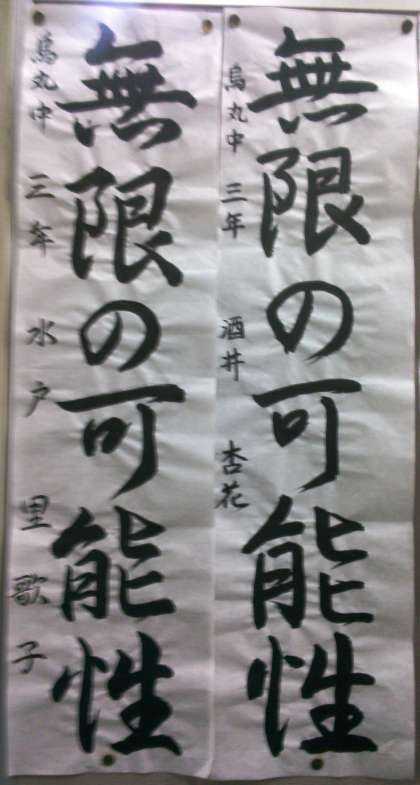 無限の可能性
烏丸中 三年 酒井 杏花
無限の可能性
烏丸中 三年 水戸 里歌子